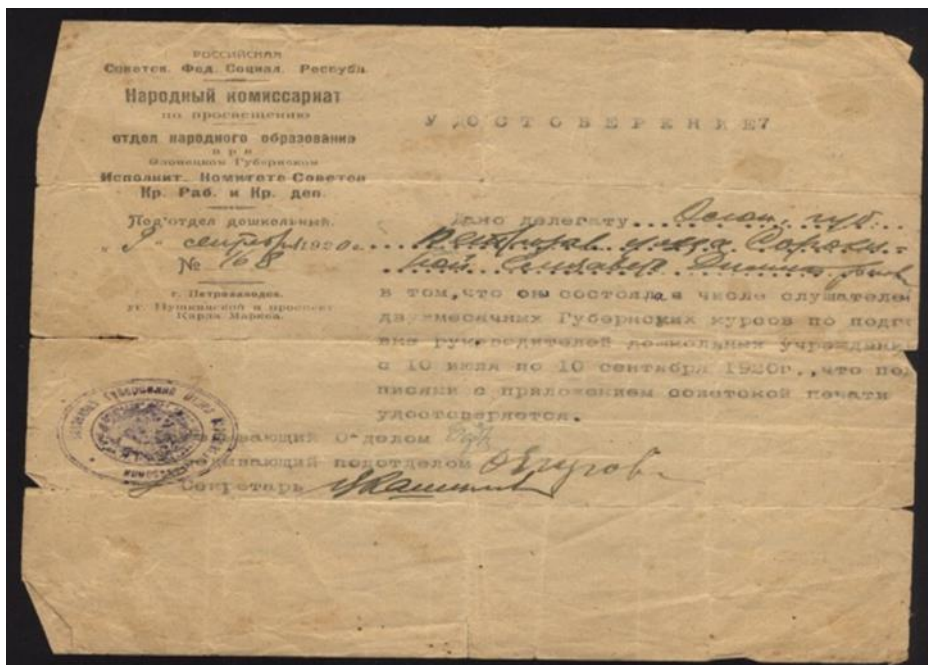 РОССИЙСКАЯ
Советск. Фед. Социал. Республ.
Народный комиссариат
по просвещению
отдел народного образования
при
Олонецком Губернском
Исполнит. Комитете Советов
Кр. Раб. и Кр. деп.
Под'отдел дошкольный.
"9" сентября 1920 г.
№ 168
г. Петрозаводск.
уг. Пушкинской и проспект
Карла Маркса.
УДОСТОВЕРЕНИЕ7
Дано делегату Олон. губ.
Петрозав. уезда Сороки-
ной Елизавет
в том, что он состоял в числе слушателей
двухмесячных Губернских курсов по подго
ния руководителей дошкольных учреждени
с 10 июля по 10 сентября 1920г., что под
писями с приложением советской печати
удостоверяется.
Отделом
подотделом
Секретарь